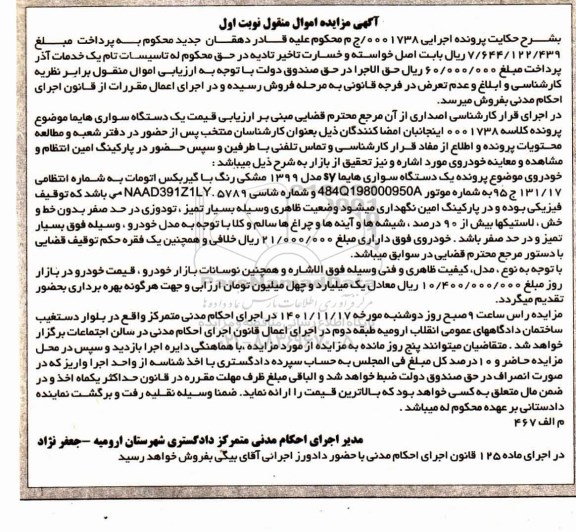 آگهی مزایده اموال منقول نوبت اول
بشرح حکایت پرونده اجرایی ۰۰۰۱۷۳۸/ج م محکوم علیه قادر دهقان جدید محکوم به پرداخت مبلغ
۷/۶۴۴/۱۲۲/۴۳۹ ریال بابت اصل خواسته و خسارت تاخیر تادیه در حق محکوم له تاسیسات تام یک خدمات آذر
پرداخت مبلغ ۶۰/۰۰۰/۰۰۰ ریال حق الاجرا در حق صندوق دولت با توجه به ارزیابی اموال منقول برابر نظریه
کارشناسی و ابلاغ و عدم تعرض در فرجه قانونی به مرحله فروش رسیده و در اجرای اعمال مقررات از قانون اجرای
احکام مدنی بفروش میرسد.
در اجرای قرار کارشناسی اصداری از آن مرجع محترم قضایی مبنی بر ارزیابی قیمت یک دستگاه سواری هایما موضوع
پرونده کلاسه ۰۰۰۱۷۳۸ اینجانبان امضا کنندگان ذیل بعنوان کارشناسان منتخب پس از حضور در دفتر شعبه و مطالعه
محتویات پرونده و اطلاع از مفاد قرار کارشناسی و تماس تلفنی با طرفین و سپس حضور در پارکینگ امین انتظام و
مشاهده و معاینه خودروی مورد اشاره و نیز تحقیق از بازار به شرح ذیل میباشد :
خودروی موضوع پرونده یک دستگاه سواری هایما sy مدل ۱۳۹۹ مشکی رنگ با گیربکس اتومات به شماره انتظامی
۱۳۱/۱۷ ج ۹۵ به شماره موتور 484Q198000950A و شماره شاسی NAAD391Z1LY.۵۷۸۹ می باشد که توقیف
فیزیکی بوده و در پارکینگ امین نگهداری میشود وضعیت ظاهری وسیله بسیار تمیز ، تودوزی در حد صفر بدون خط و
خش ، لاستیکها بیش از ۹۰ درصد ، شیشه ها و آینه ها و چراغ ها سالم و کلا با توجه به مدل خودرو ، وسیله فوق بسیار
تمیز و در حد صفر باشد . خودروی فوق دارای مبلغ ۲۱/۰۰۰/۰۰۰ ریال خلافی و همچنین یک فقره حکم توقیف قضایی
با دستور مرجع محترم قضایی در سوابق میباشد.
با توجه به نوع ، مدل، کیفیت ظاهری و فنی وسیله فوق الاشاره و همچنین نوسانات بازار خودرو ، قیمت خودرو در بازار
روز مبلغ ۱۰/۴۰۰/۰۰۰/۰۰۰ ریال معادل یک میلیارد و چهل میلیون تومان ارزیابی و جهت هرگونه بهره برداری بحضور
تقدیم میگردد.
مزایده راس ساعت ۹ صبح روز دوشنبه مورخه ۱۴۰۱/۱۱/۱۷ در اجرای احکام مدنی متمرکز واقع در بلوار دستغیب
ساختمان دادگاههای عمومی انقلاب ارومیه طبقه دوم در اجرای اعمال قانون اجرای احکام مدنی در سالن اجتماعات برگزار
خواهد شد . متقاضیان میتوانند پنج روز مانده به مزایده از مورد مزایده ، با هماهنگی دایره اجرا بازدید و سپس در محل
مزایده حاضر و ۱۰ درصد کل مبلغ فی المجلس به حساب سپرده دادگستری با اخذ شناسه از واحد اجرا واریز که در
صورت انصراف در حق صندوق دولت ضبط خواهد شد و الباقی مبلغ ظرف مهلت مقرره در قانون حداکثر یکماه اخذ و در
ضمن مال متعلق به کسی خواهد بود که بالاترین قیمت را ارائه نماید. ضمنا وسیله نقلیه رفت و برگشت نماینده
دادستانی بر عهده محکوم له میباشد .
م الف ۴۶۷
مدیر اجرای احکام مدنی متمرکز دادگستری شهرستان ارومیه –جعفر نژاد
در اجرای ماده ۱۲۵ قانون اجرای احکام مدنی با حضور دادورز اجرائی آقای بیگی بفروش خواهد رسید